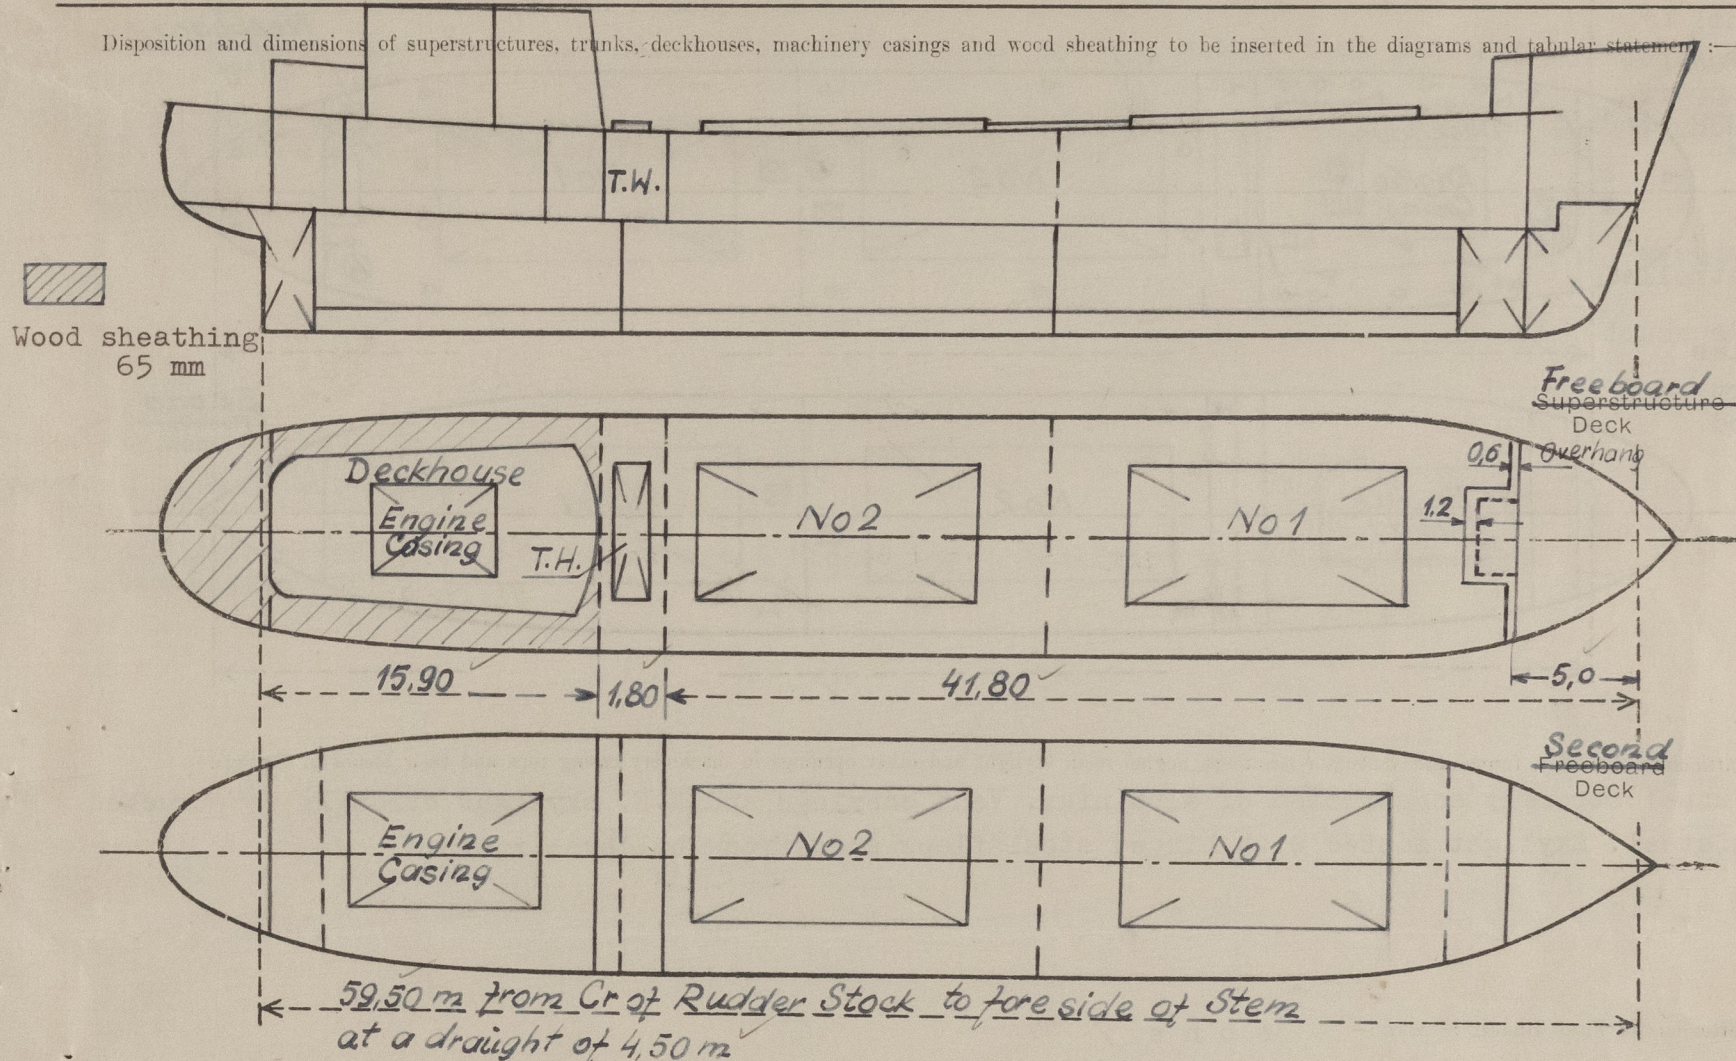 Disposition and dimensions of superstructures, trunks, deckhouses, machinery casings and wood sheathing to be inserted in the diagrams and tabular statement :—
T.W.
Wood sheathing
65 mm
Freeboard
Superstructure
Deck
Overhang
0,6
1.2
Deckhouse
Engine
Casing
T.H.
No 2
No 1
15,90
1,80
41,80
5,0
Second
Freeboard
Deck
Engine
Casing
No 2
No 1
59,50 m from Cr of Rudder Stock to fore side of Stem
at a draught of 4,50 m